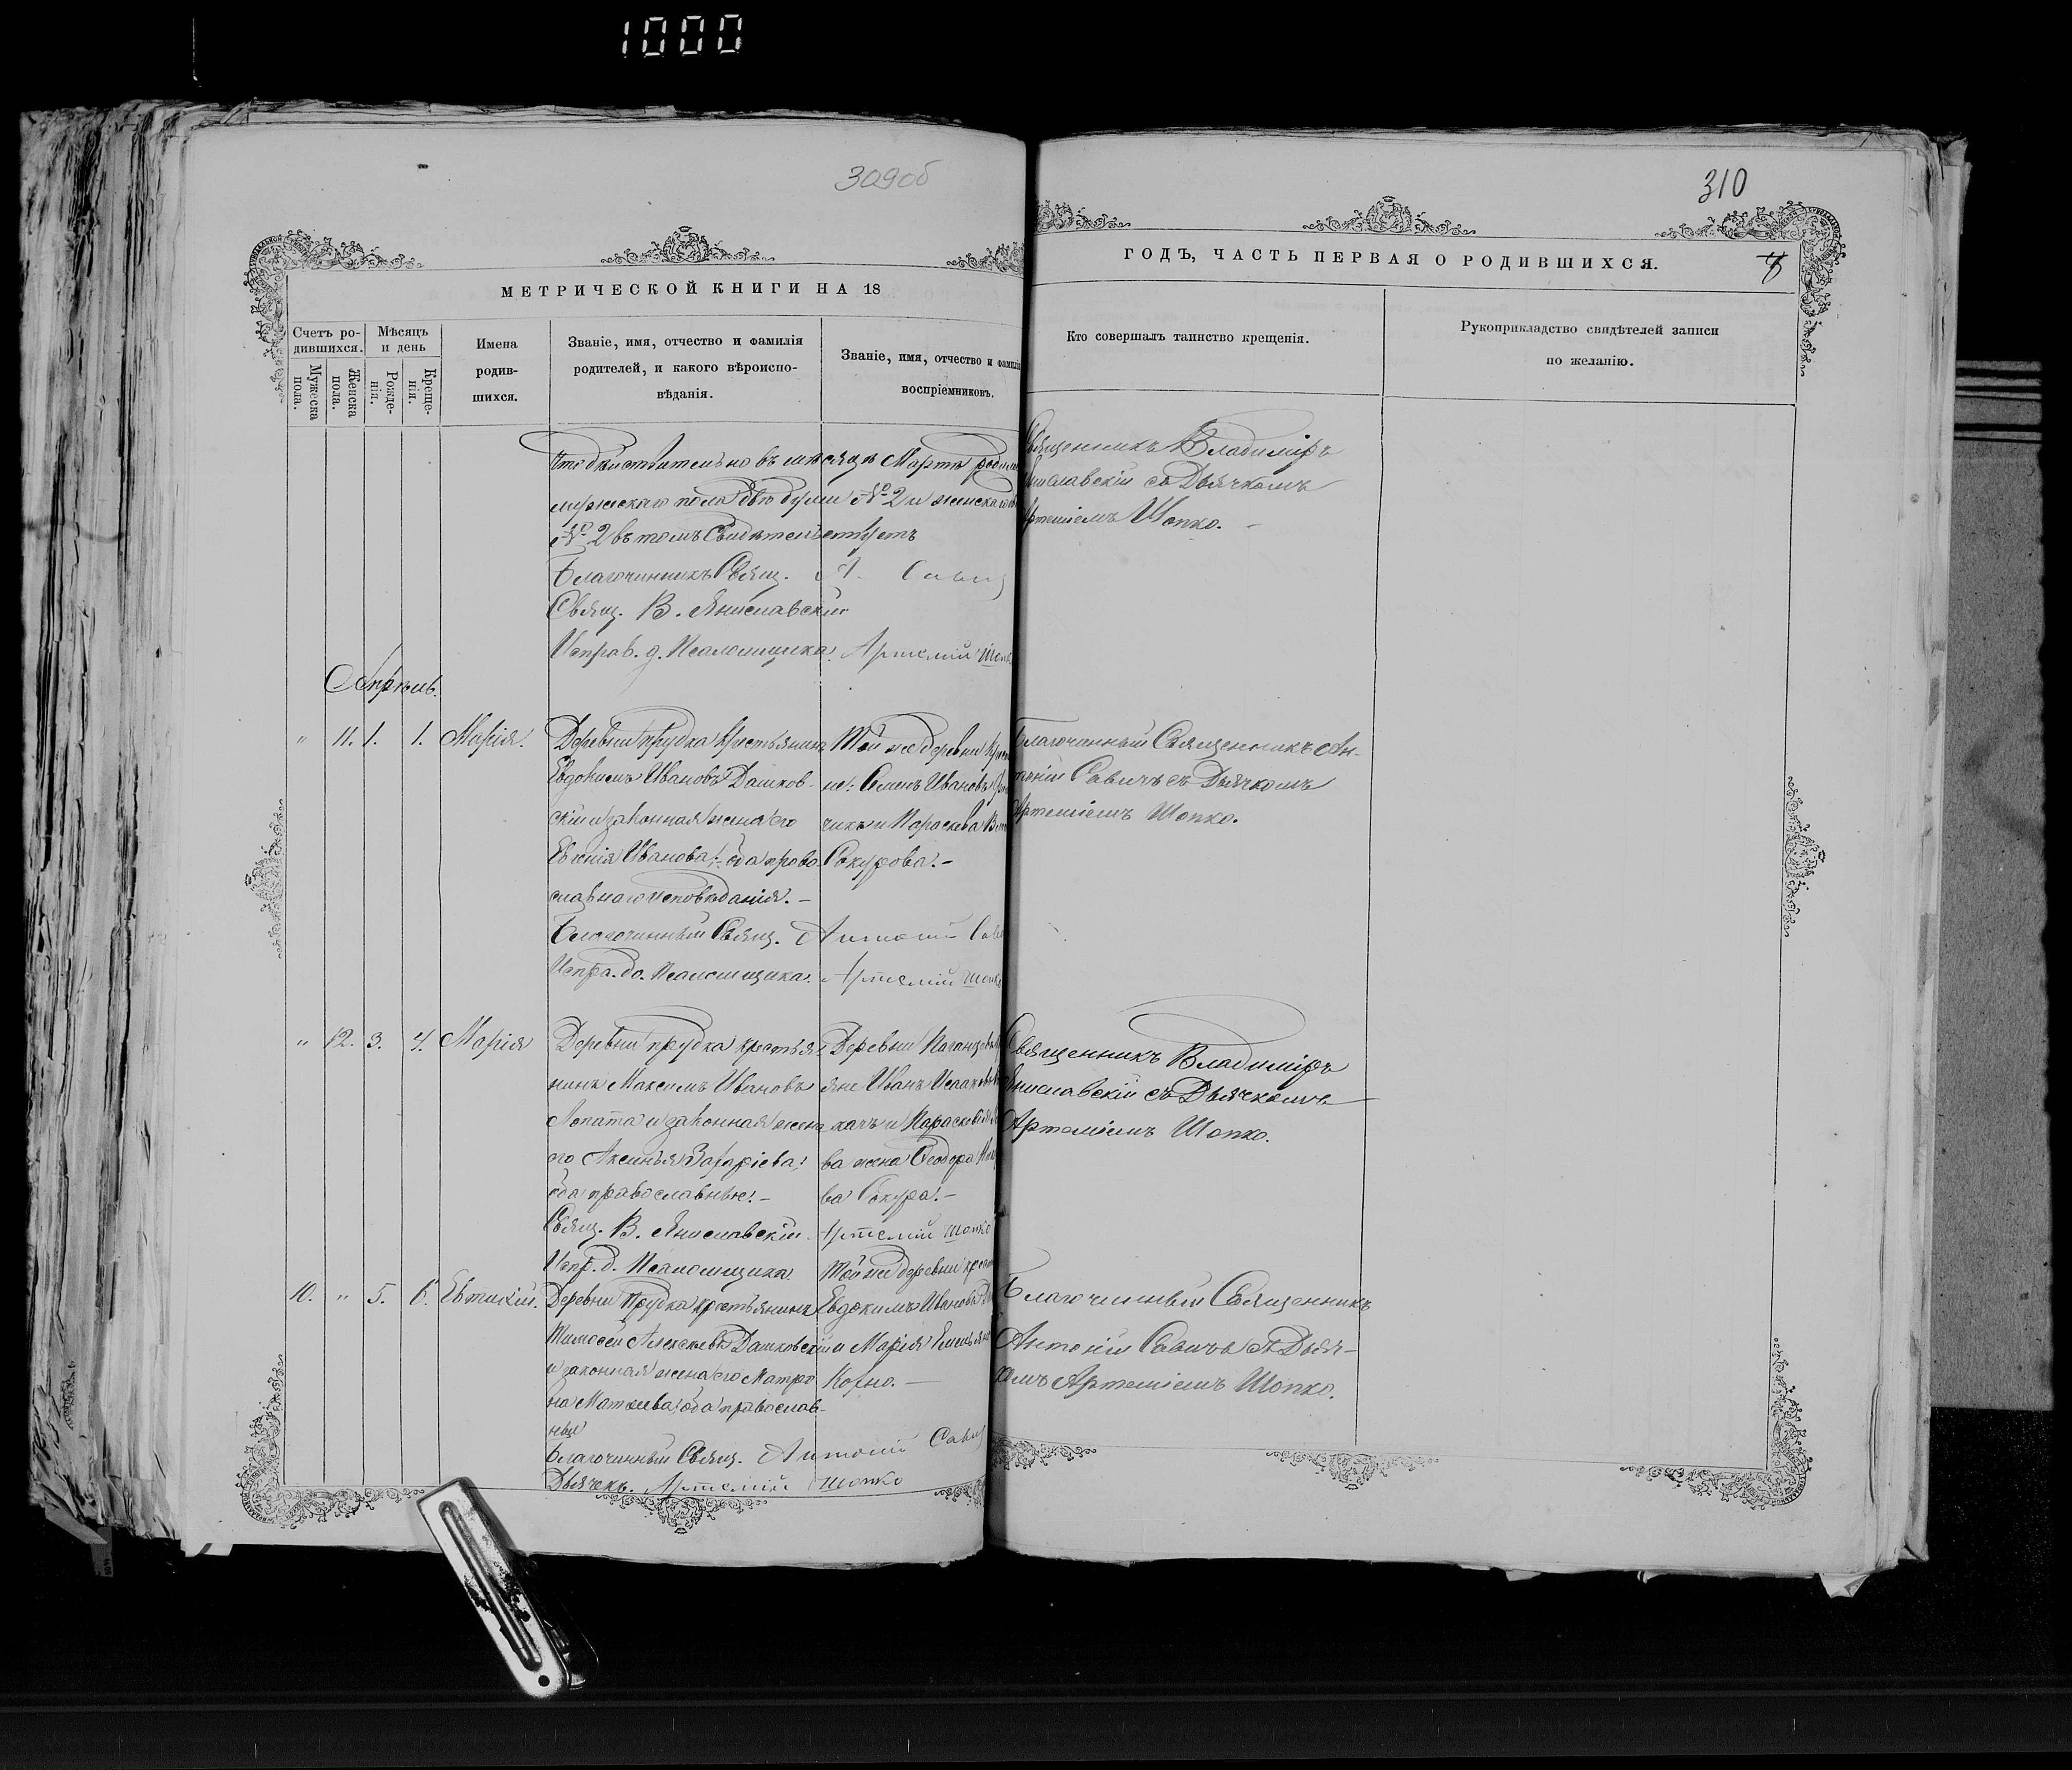 1000
309об
310
МЕТРИЧЕСКОЙ КНИГИ НА 18
ГОДЪ, ЧАСТЬ ПЕРВАЯ О РОДИВШИХСЯ.
Счетъ ро-
дившихся.
Мужеска
пола.
Женска
пола.
Мѣсяцъ
и день
Рожде-
нія.
Креще-
нія.
Имена
родив-
шихся.
Званіе, имя, отчество и фамилія
родителей, и какого вѣроиспо-
вѣданія.
Званіе, имя, отчество и фамилія
воспріемниковъ.
Кто совершалъ таинство крещенія.
Рукоприкладство свидѣтелей записи
по желанію.
Что действительно въ мѣсяцѣ Мартѣ
мужескаго пола № 2 и женскаго
№ 2 въ томъ Свидѣтельствуетъ
Благочинникъ Свящ. А. Савич
Свящ. В. Яниславскій
Исправ. д. Псаломщика Артемій Шопко
Священникъ Владиміръ
ниславскій съ Дьячкомъ
Артеміемъ Шопко.
Апрѣль.
" 11. 1. 1. Марія.
Деревни Прудка Крестьянинъ
Евдокимъ Ивановъ Дашков-
скій и законная жена его
Евгенія Иванова: оба право
славнаго исповѣданія. –
Благочинный Свящ. Антоній
Испра. до. Псаломщика. Артемій Шопко
Той же деревни
не: Семенъ Ивановъ
чикъ и Параскева
Сокурова. –
Благочинный Священникъ Ан-
тоній Савичъ съ Дьячкомъ
Артеміемъ Шопко.
" 12. 3. 4. Марія
Деревни Прудка крестья-
нинъ Максимъ Ивановъ
Лопата и законная жена
его Аксинья Захаріева;
оба православные. –
Свящ. В. Яниславскій Артемій Шопко
Испр. д. Псаломщика
Деревни
яне Иванъ
качъ и Параскевія
ва жена Феодора
ва Сокура. –
Священникъ Владиміръ
ниславскій съ Дьячкомъ
Артеміемъ Шопко.
10. " 5. 6. Евтихій.
Деревни Прудка крестьянинъ
Тимофей Алексѣевъ Дашковскій
и законная жена его Матро
на Матвеева: оба православ-
ные
Благочинный Свящ. Антоній Савич
Дьячекъ. Артемій Шопко
Той же деревни
Евдокимъ Ивановъ
и Марія
Корно. –
Благочинный Священникъ
Антоній Савичъ съ Дьяч-
комъ Артеміемъ Шопко.